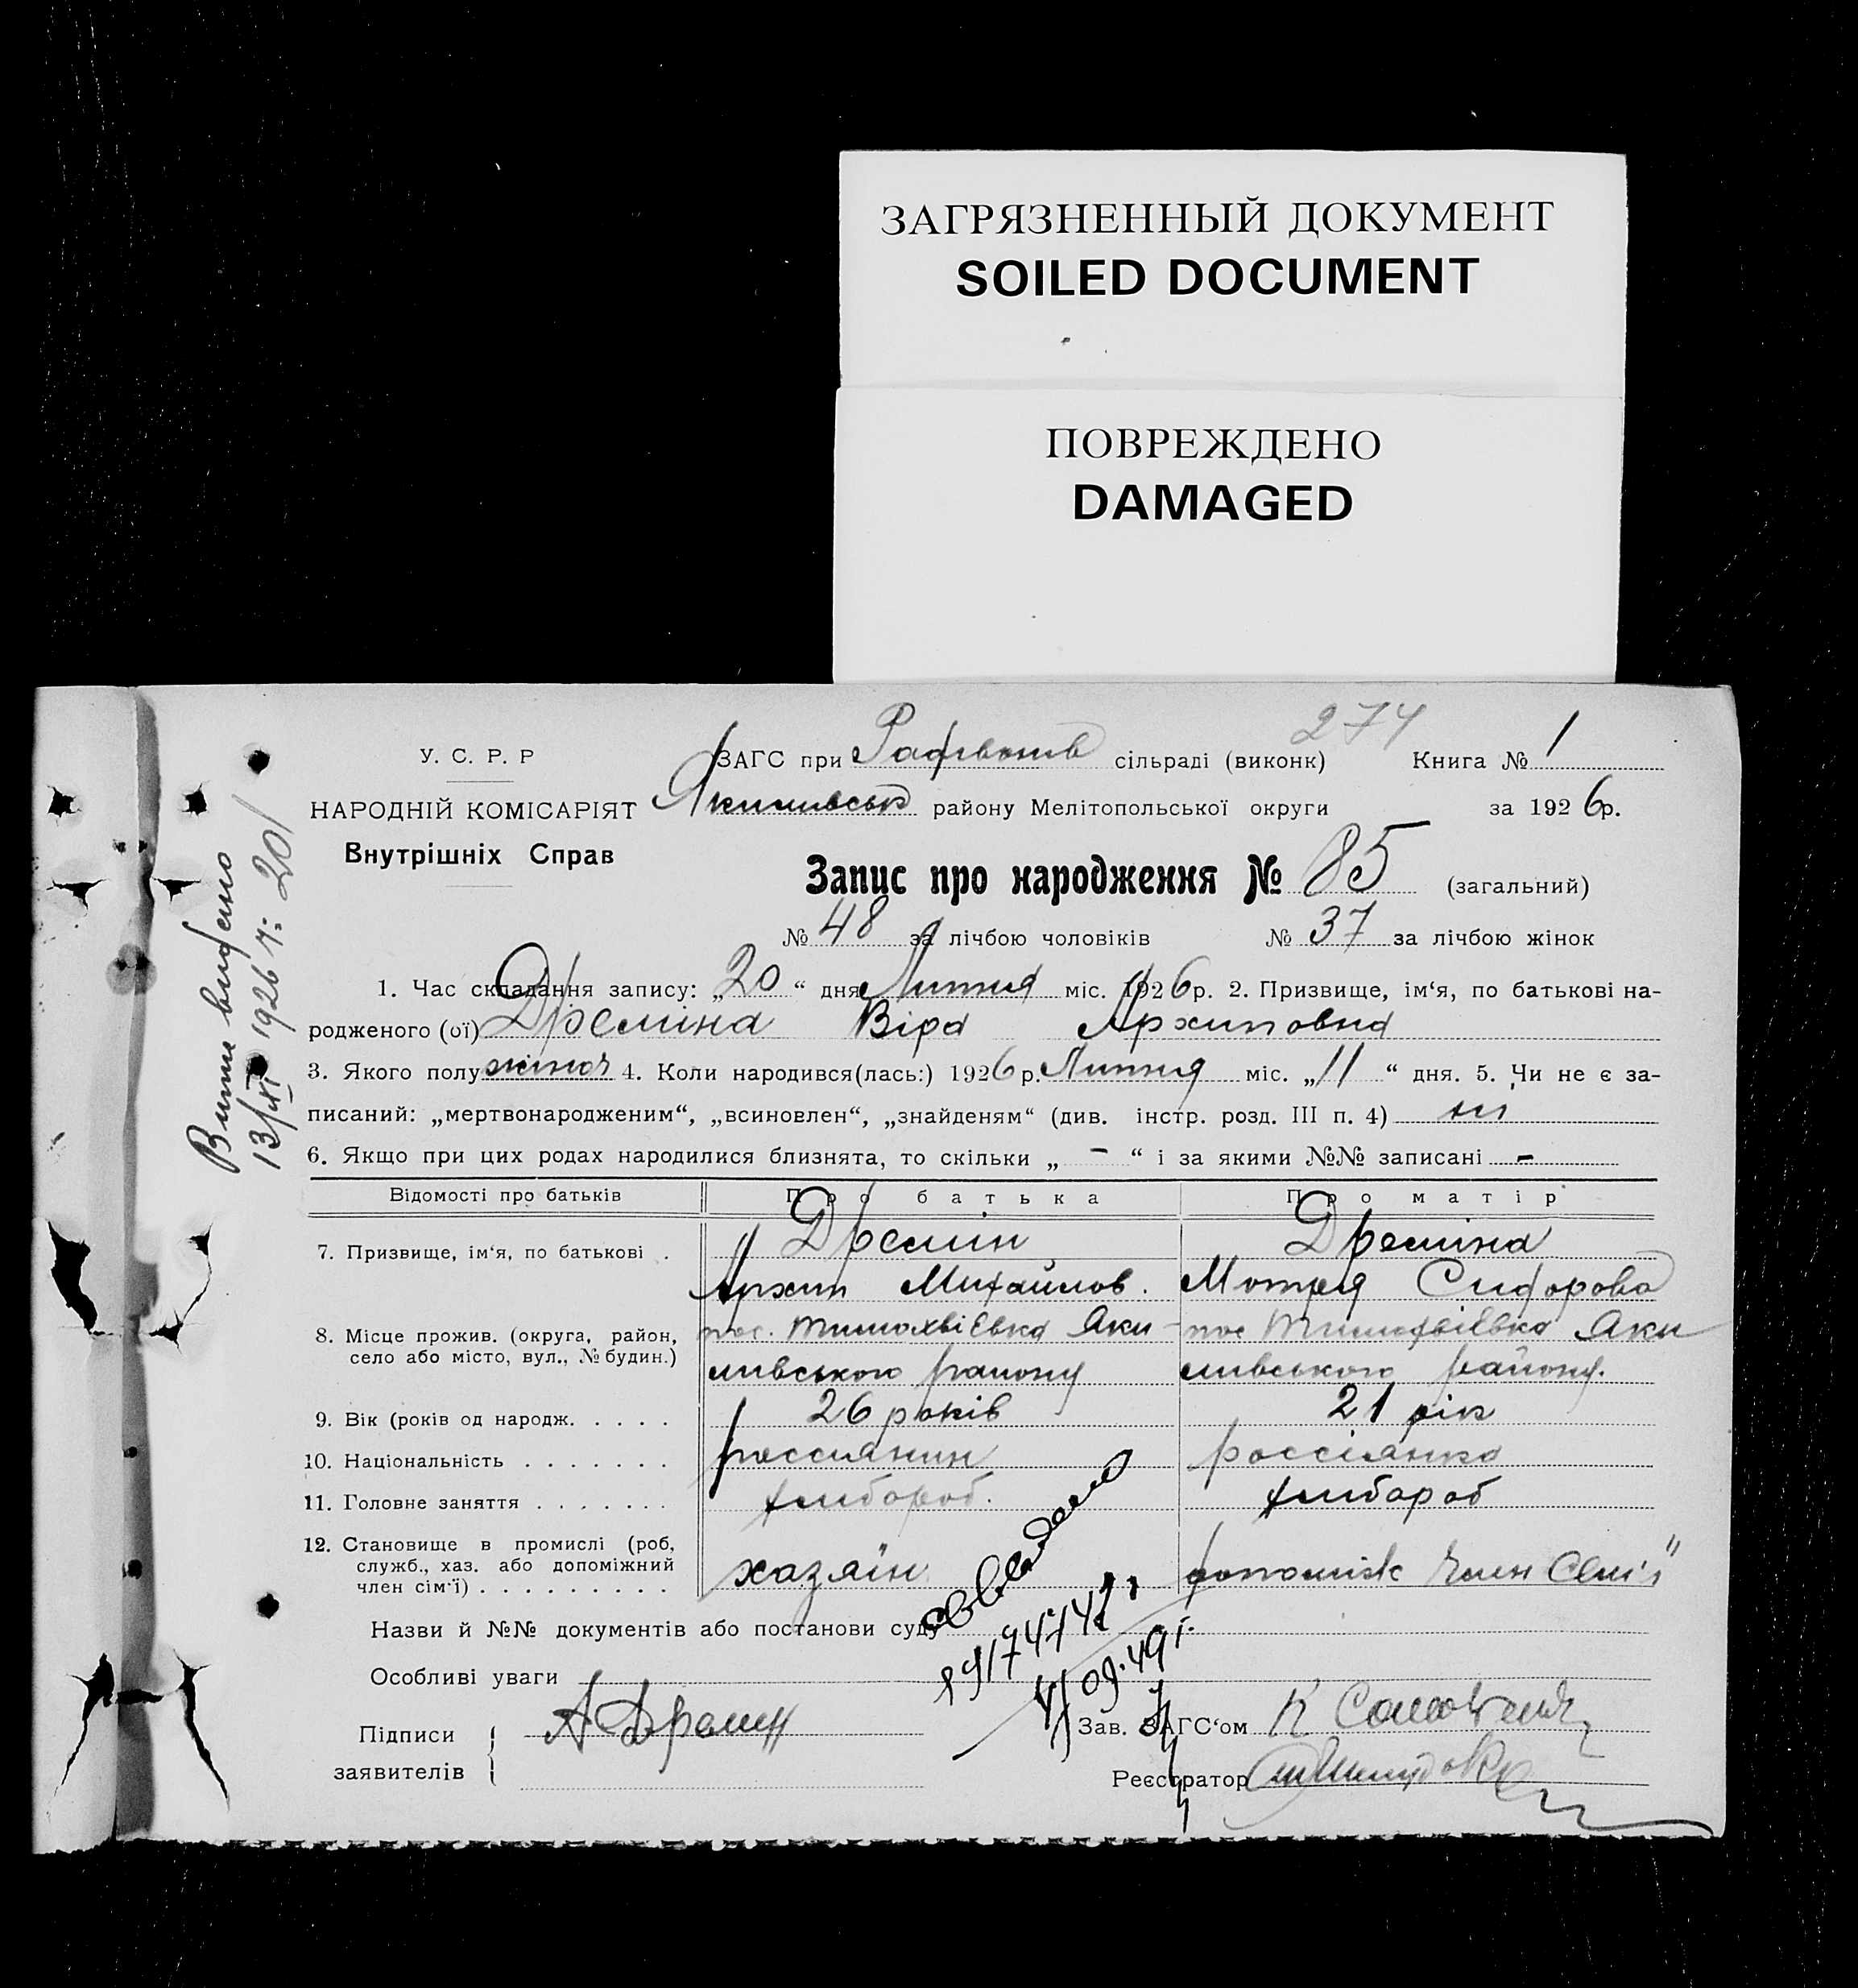 ЗАГРЯЗНЕННЫЙ ДОКУМЕНТ
SOILED DOCUMENT
ПОВРЕЖДЕНО
DAMAGED
274
У. С. Р. Р
НАРОДНІЙ КОМІСАРІЯТ
Внутрішніх Справ
ЗАГС при сільраді (виконк) Книга № 1
району Мелітопольської округи за 1926р.
Запис про народження № 85 (загальний)
№ 48 за лічбою чоловіків № 37 за лічбою жінок
1. Час складання запису: „20“ дня Лютня міс. 1926р. 2. Призвище, ім‘я, по батькові на-
родженого (ої) Дреміна Віра Архиповна
3. Якого полу жіноч 4. Коли народився(лась:) 1926р. Лютня міс. „11“ дня. 5. Чи не є за-
писаний: „мертвонародженим“, „всиновлен“, „знайденям“ (див. інстр. розд. III п. 4) ні
6. Якщо при цих родах народилися близнята, то скільки „ - “ і за якими №№ записані -
Відомості про батьків Про батька Про матір
7. Призвище, ім‘я, по батькові . Дремин Дреміна
Архип Михайлов. Мотря Сидорова
8. Місце прожив. (округа, район, пос. Яки- пос Яки
село або місто, вул., № будин.) мивського району мивського району.
9. Вік (років од народж. . . . . 26 років 21 рік
10. Національність . . . . . . . россиянин россіянка
11. Головне заняття . . . . . . . хлибороб. хлибороб
12. Становище в промислі (роб,
служб., хаз. або допоміжний хазяїн допоміжс член Сем'ї
член сім‘ї) . . . . . . . . .
Назви й №№ документів або постанови суду
Особливі уваги
Підписи
заявителів
А Дремин
Зав. ЗАГС‘ом
Реєстратор
Витяг видано
13/VI 1926 р: 201
09.49 г.